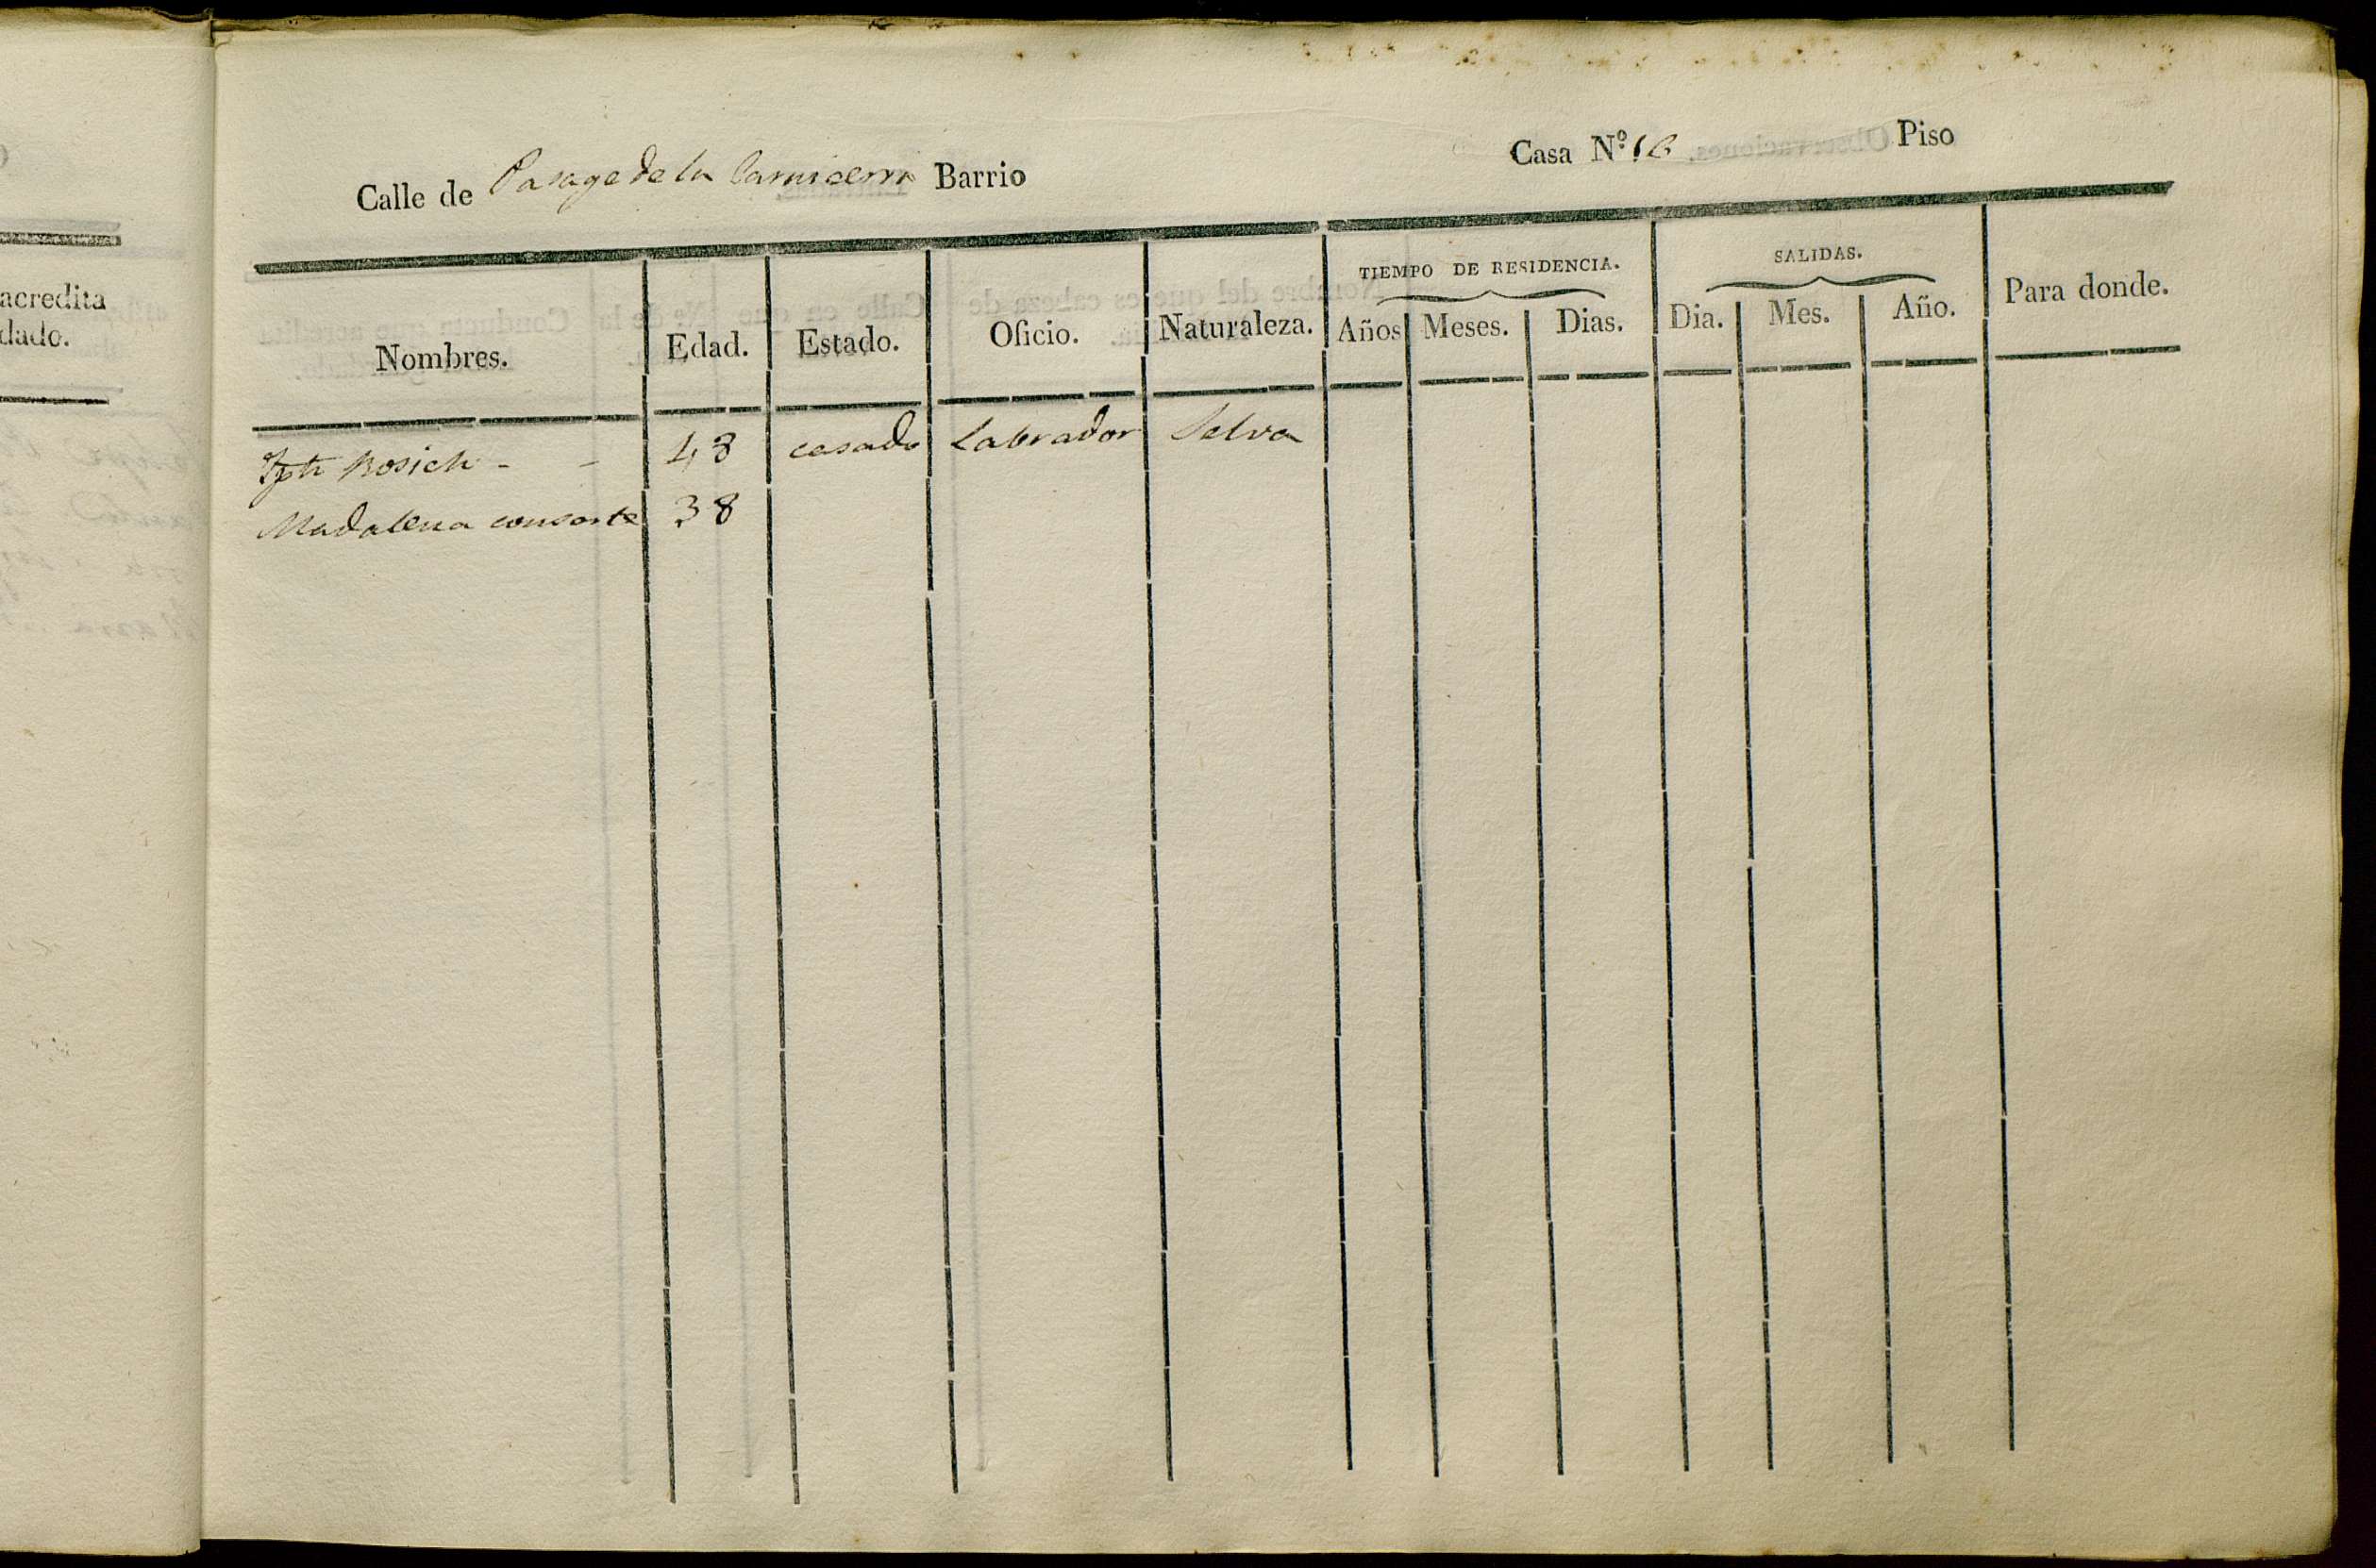 acredita
dado.
Calle de Pasage de la Carniceria Barrio Casa Nº. 16 Piso
TIEMPO DE RESIDENCIA. SALIDAS.
Nombres. Edad. Estado. Oficio. Naturaleza. Años Meses. Dias. Dia. Mes. Año. Para donde.
Jph Rosich - - 43 casado Labrador Selva
Madalena consorte 38